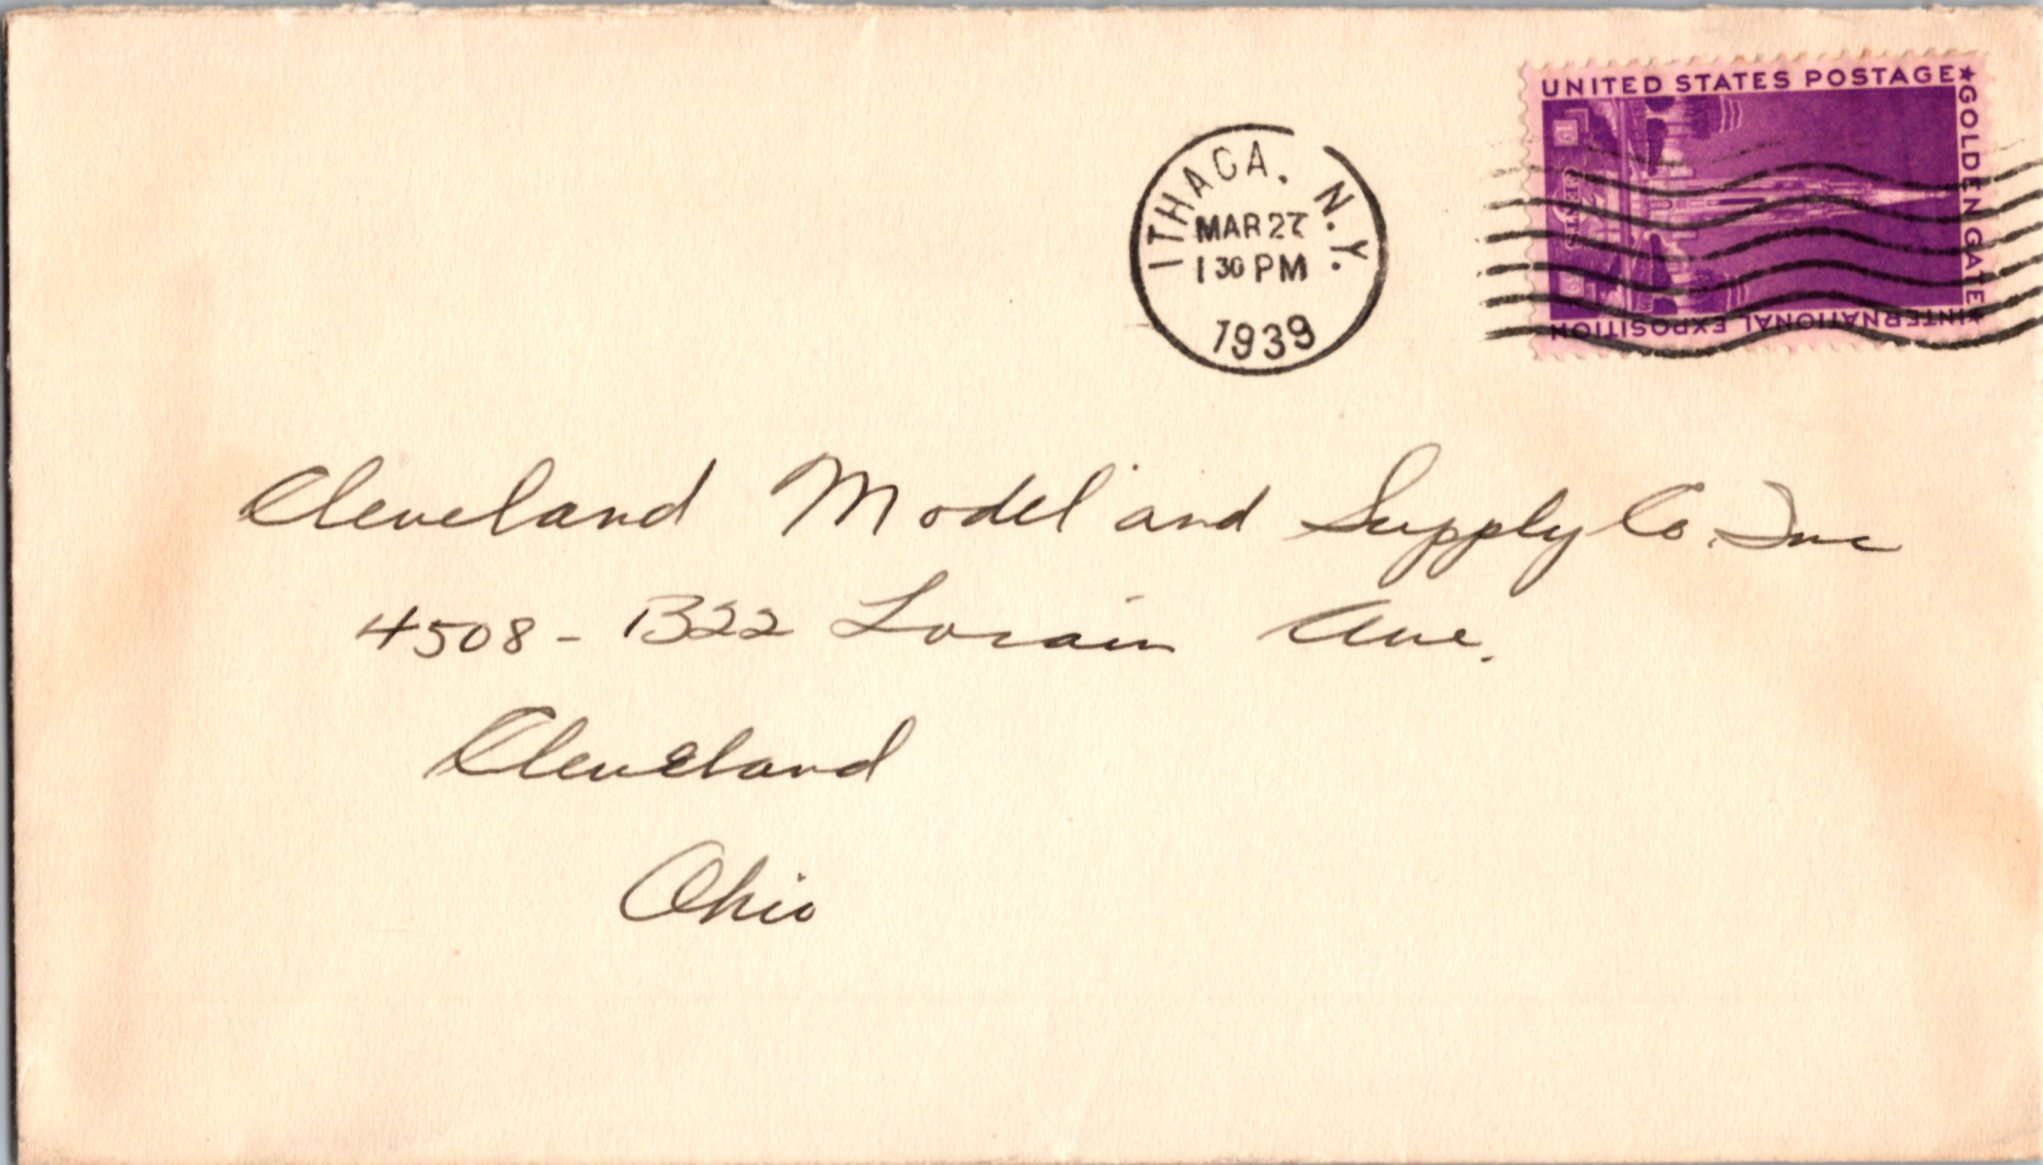 UNITED STATES POSTAGE
GOLDEN GATE
INTERNATIONAL EXPOSITION
CENTS
ITHACA, N.Y.
MAR 27
1 30 PM
1939
Cleveland Model and Supply Co. Inc
4508 - B22 Lorain Ave.
Cleveland
Ohio